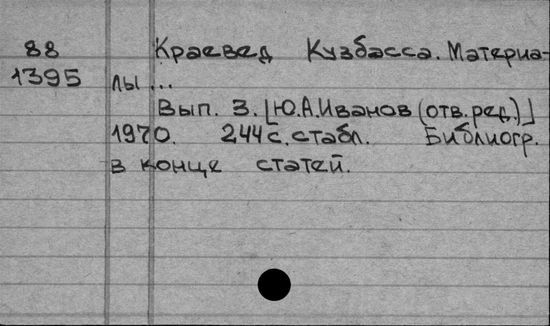 88 Краевед Кузбасса. Материа-
1395 лы...
Вып. 3. [Ю.А.Иванов (отв.ред.)]
1970. 244с. с табл. Библиогр.
в конце статей.